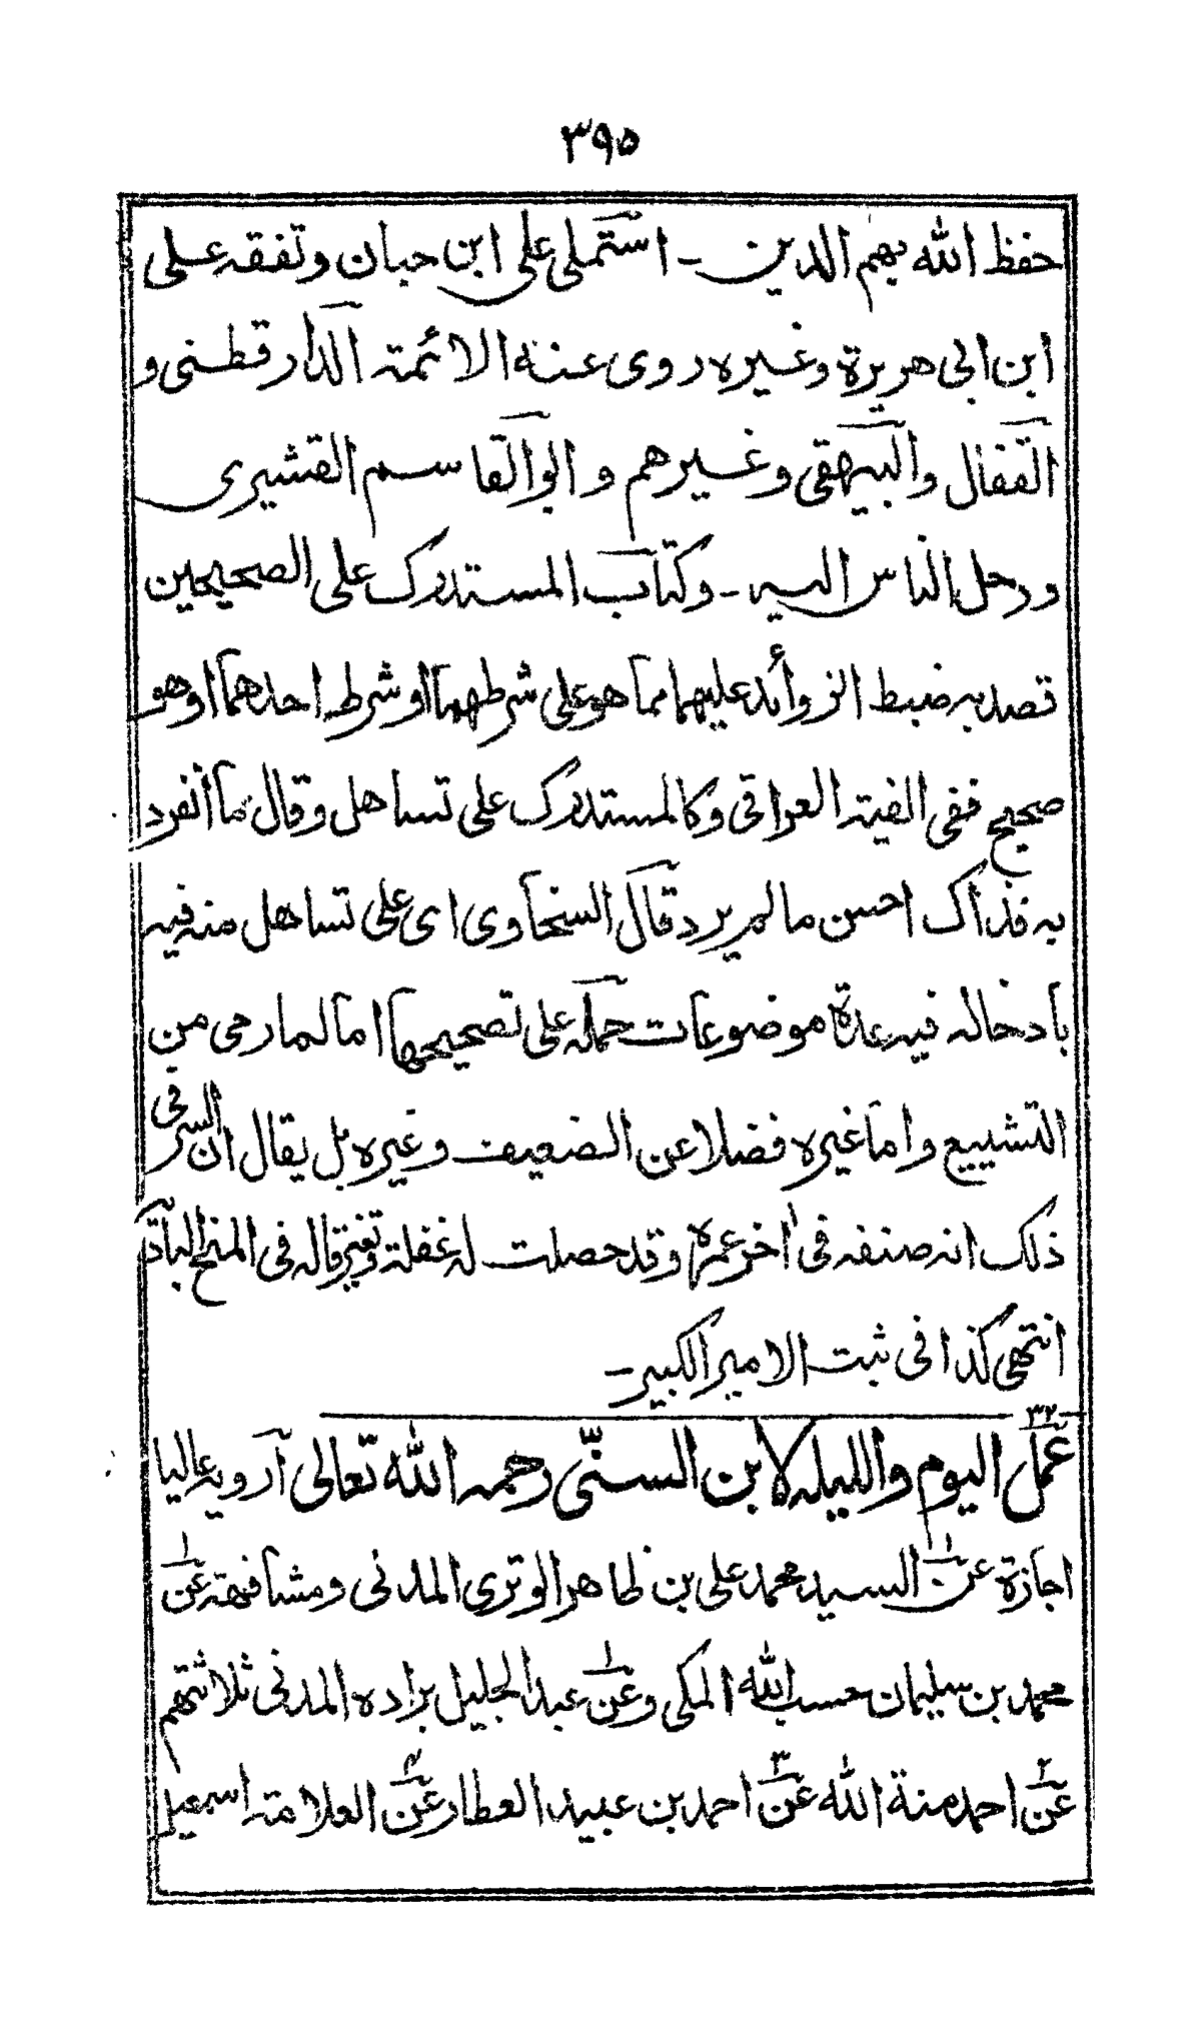 ٣٩٥
حفظ الله بهم الدين ـ استملى على ابن حبان وتفقه على
ابن ابي هريرة وغيره روى عنه الائمة الدارقطنى و
القفال والبيهقى وغيرهم و ابوالقاسم القشيرى
ورحل الناس اليه ـ وكتاب المستدرك على الصحيحين
قصد به ضبط الزوائد عليهما مما هو على شرطهما او شرط احدهما او هو
صحيح ففى الفية العراقى وكالمستدرك على تساهل وقال ما انفرد
به فذاك احسن مالم يرد قال السخاوى اى على تساهل منه فيه
بادخاله فيه عدة موضوعات حمله على تصحيحها اما لما رمى من
التشييع واما غيره فضلا عن الضعيف وغيره بل يقال ان السر فى
ذلك انه صنفه فى اخر عمره وقد حصلت له غفلة وتغير قاله فى المنح البادية
انتهى كذا فى ثبت الامير الكبير ـ
٣٢
عمل اليوم والليله لابن السنّى رحمه الله تعالى ارويه عاليا
اجازة عن ١ السيد محمد على بن ظاهر الوترى المدنى ومشافهة عن ١
محمد بن سليمان حسب الله المكى وعن ١ عبد الجليل براده المدنى ثلاثتهم
عن ٢ احمد منة الله عن ٣ احمد بن عبيد العطار عن ٤ العلامة اسمعيل